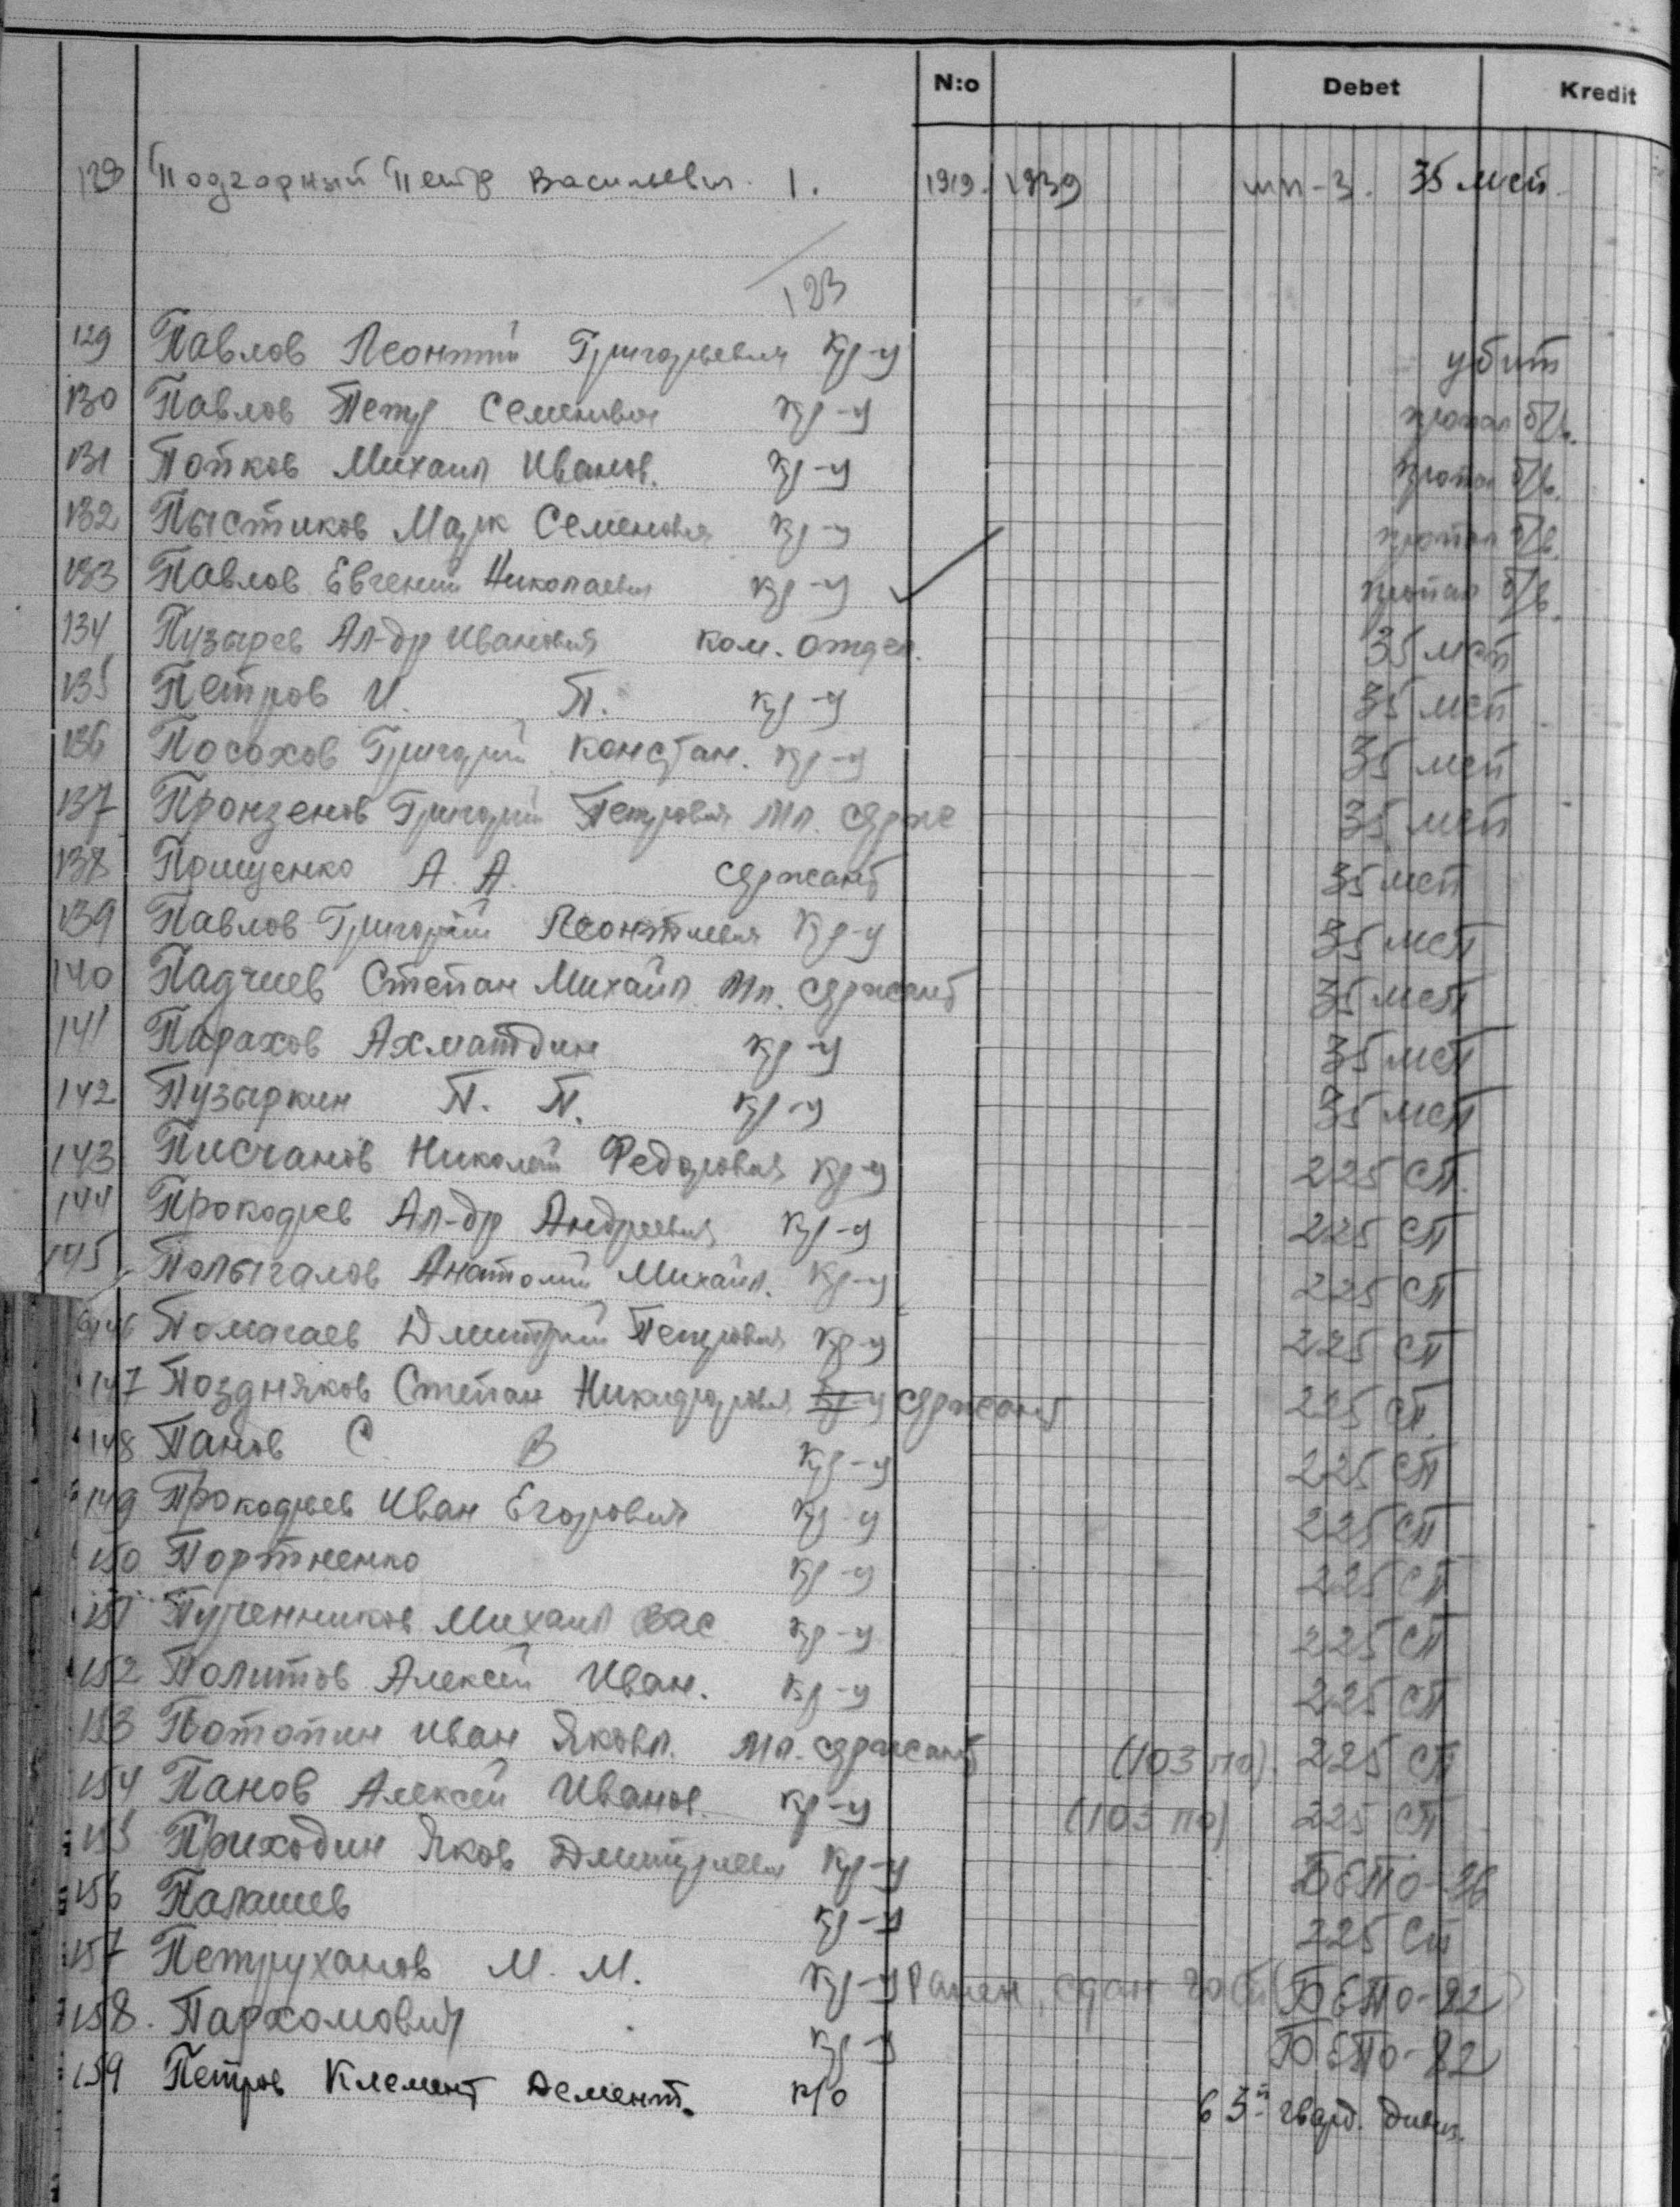 N:o Debet Kredit
129 Подгорный Петр Васильевич 1. 1919. 1939 мп-3. 35 мсп.
123
129 Павлов Леонтий Григорьевич кр-ц убит
130 Павлов Петр Семенович кр-ц пропал б/в.
131 Попков Михаил Иванов. кр-ц пропал б/в.
132 Пыстиков Марк Семенович кр-ц пропал б/в.
133 Павлов Евгений Николаевич кр-ц пропал б/в.
134 Пузырев Ал-др Иванович ком. отдел. 35 мсп
135 Петров И. П. кр-ц 35 мсп
136 Посохов Григорий Констан. кр-ц 35 мсп
137 Пронзенов Григорий Петрович мл. серже 35 мсп
138 Полищенко А. А. сержант 35 мсп
139 Павлов Григорий Леонтиевич кр-ц 35 мсп
140 Падчиев Степан Михайл. мл. сержант 35 мсп
141 Парахов Ахматдин кр-ц 35 мсп
142 Пузыркин П. П. кр-ц 35 мсп
143 Писчанов Николай Федорович кр-ц 225 сп.
144 Прокофев Ал-др Андреевич кр-ц 225 сп
145 Полыгалов Анатолий Михайл. кр-ц 225 сп
146 Помагаев Дмитрий Петрович кр-ц 225 сп
147 Поздняков Степан Никифорович кр-ц сержант 225 сп.
148 Панов С. В кр-ц 225 сп
149 Прокофьев Иван Егорович кр-ц 225 сп
150 Портненко кр-ц 225 сп
151 Михаил Вас кр-ц 225 сп
152 Политов Алексей Иван. кр-ц 225 сп
153 Потопин Иван Яковл. мл. сержант (103 по). 225 сп
154 Панов Алексей Иванов. кр-ц (103 по) 225 сп
155 Приходин Яков Дмитриевич кр-ц БЕПО-
156 Палашев кр-ц 225 сп
157 Петруханов М. М. кр-ц Ранен, сдан (БЕПО-82)
158. Пархомович кр-ц БЕПО-82
159 Петров Клемент Демент. к/о 63й гвард. дивиз.